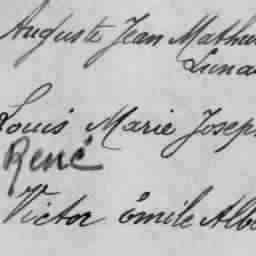 Auguste Jean Mathu
Luna
Louis Marie Joseph
René
Victor Émile Alb